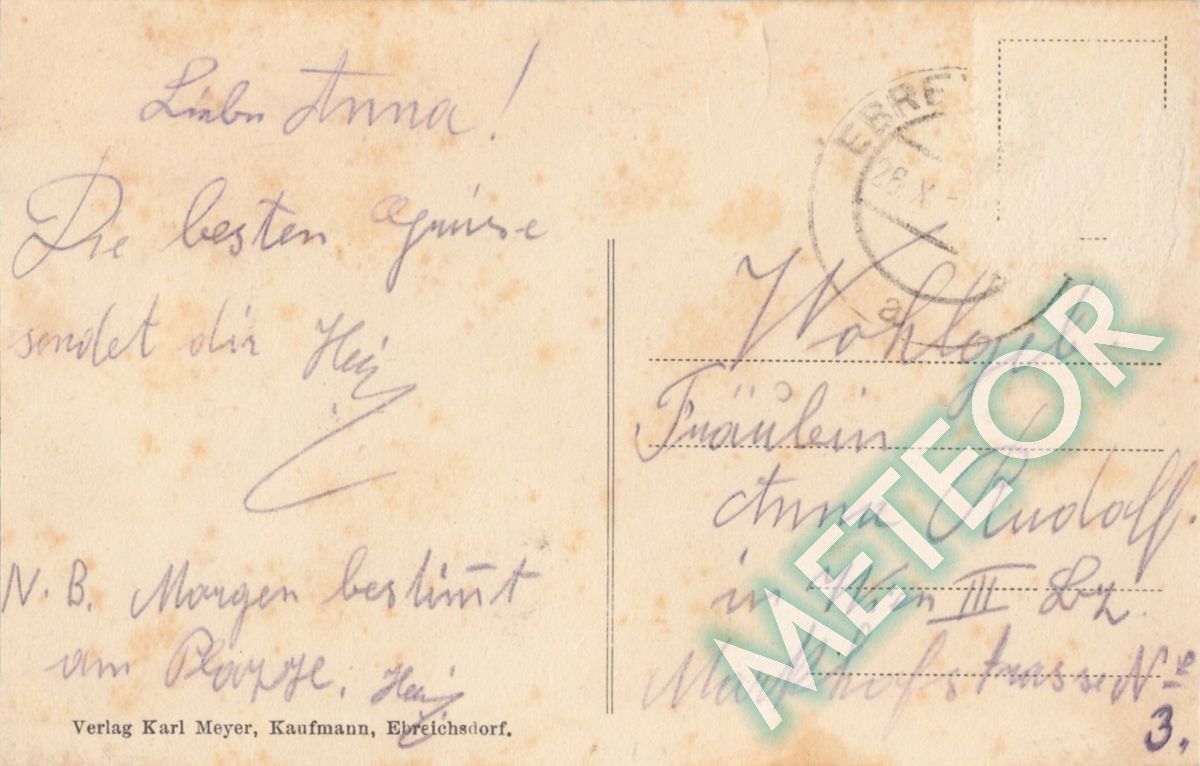 Liebe Anna!
Die besten Grüsse
sendet dir Heinz
N. B. Morgen bestim̄t
am Platze. Heinz
Verlag Karl Meyer, Kaufmann, Ebreichsdorf.
EBRE
28 X
a
Wohlgeb.
Fräulein
Anna Rudolf.
in Wien III Bz.
No
3.
METEOR